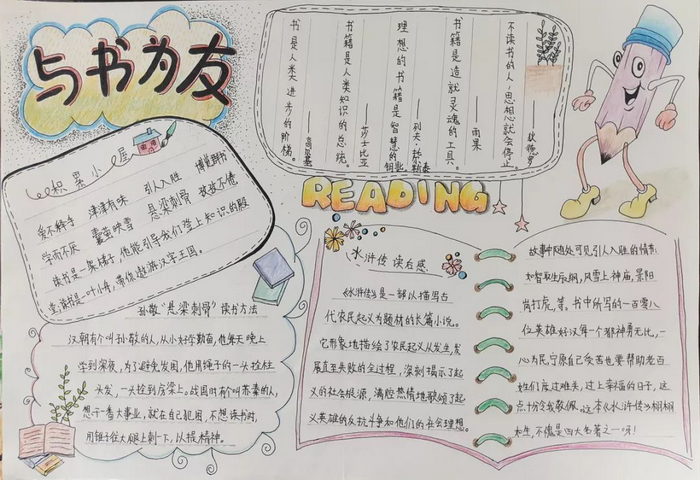 与书为友
书是人类进步的阶梯。
高尔基
书籍是人类知识的总统。
——莎士比亚
理想的书籍是智慧的钥匙
——列夫·托尔斯泰
书籍是造就灵魂的工具。
——雨果
不读书的人，思想就会停止。
——狄德罗
积累小屋
爱不释手 津津有味 引人入胜 博览群书
学而不厌 囊萤映雪 悬梁刺骨 孜孜不倦
读书是一架梯子，他能引导我们登上知识的殿
堂，读书是一叶小舟，带你遨游汉字王国。
READING
孙敬"悬梁刺骨"读书方法
汉朝有个叫孙敬的人，从小好学勤奋，他每天晚上
学到深夜，为了避免发困，他用绳子的一头拴住
头发，一头拴到房梁上。战国时有个叫苏秦的人，
想干一番大事业，就在自己犯困，不想读书时，
用锥子往大腿上刺一下，以提精神。
水浒传 读后感
《水浒传》是一部以描写古
代农民起义为题材的长篇小说。
它形象地描绘了农民起义从发生，发
展直至失败的全过程，深刻揭示了起
义的社会根源，满腔热情地歌颂了起
义英雄的反抗斗争和他们的社会理想。
故事中随处可见引人入胜的情节
如智取生辰纲，风雪上神庙，景阳
岗打虎，等。书中所写的一百零八
位英雄好汉每一个都神勇无比，一
心为民宁愿自己受苦也要帮助老百
姓们度过难关，过上幸福的日子，这
点十分令我敬佩。这本《水浒传》栩栩
如生，不愧是四大名著之一呀！